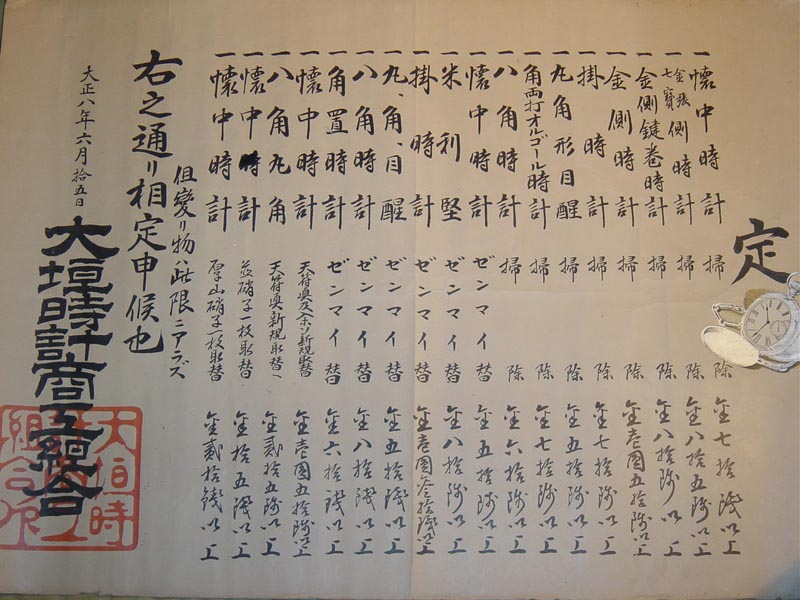 定
一 懐中時計 掃除 金七拾銭以上
一 金張七宝側時計 掃除 金八拾五銭以上
一 金側鍵巻時計 掃除 金八拾銭以上
一 金側時計 掃除 金壱圓五拾銭以上
一 掛時計 掃除 金七拾銭以上
一 丸角形目醒 掃除 金五拾銭以上
一 角両打オルゴール時計 掃除 金七拾銭以上
一 八角時計 掃除 金六拾銭以上
一 懐中時計 ゼンマイ替 金五拾銭以上
一 米利堅 ゼンマイ替 金八拾銭以上
一 掛時計 ゼンマイ替 金壱圓参拾銭以上
一 丸、角、目醒 ゼンマイ替 金五拾銭以上
一 八角時計 ゼンマイ替 金八拾銭以上
一 角置時計 ゼンマイ替 金六拾銭以上
一 懐中時計 天符真入ホソ新規取替 金壱圓五拾銭以上
一 八角丸角 天符真新規取替 金貳拾五銭以上
一 懐中時計 並硝子一枚取替 金拾五銭以上
一 懐中時計 厚山硝子一枚取替 金貳拾銭以上
但変リ物ハ此限ニアラズ
右之通リ相定申候也
大正八年六月拾五日
大垣時計商工組合